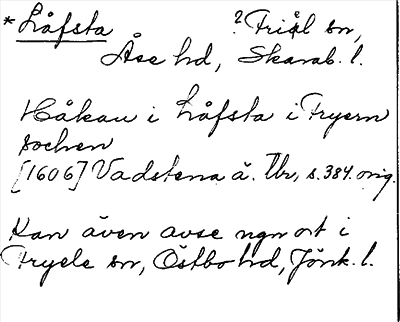 * Låfsta ? Friel sn,
Åse hd, Skarab. l.
Håkan i Låfsta i Fryern
sochen
[1606] Vadstena ä. Tbr, s. 384 orig.
Kan även avse ngn ort i
Fryele sn, Östbo hd, Jönk. l.